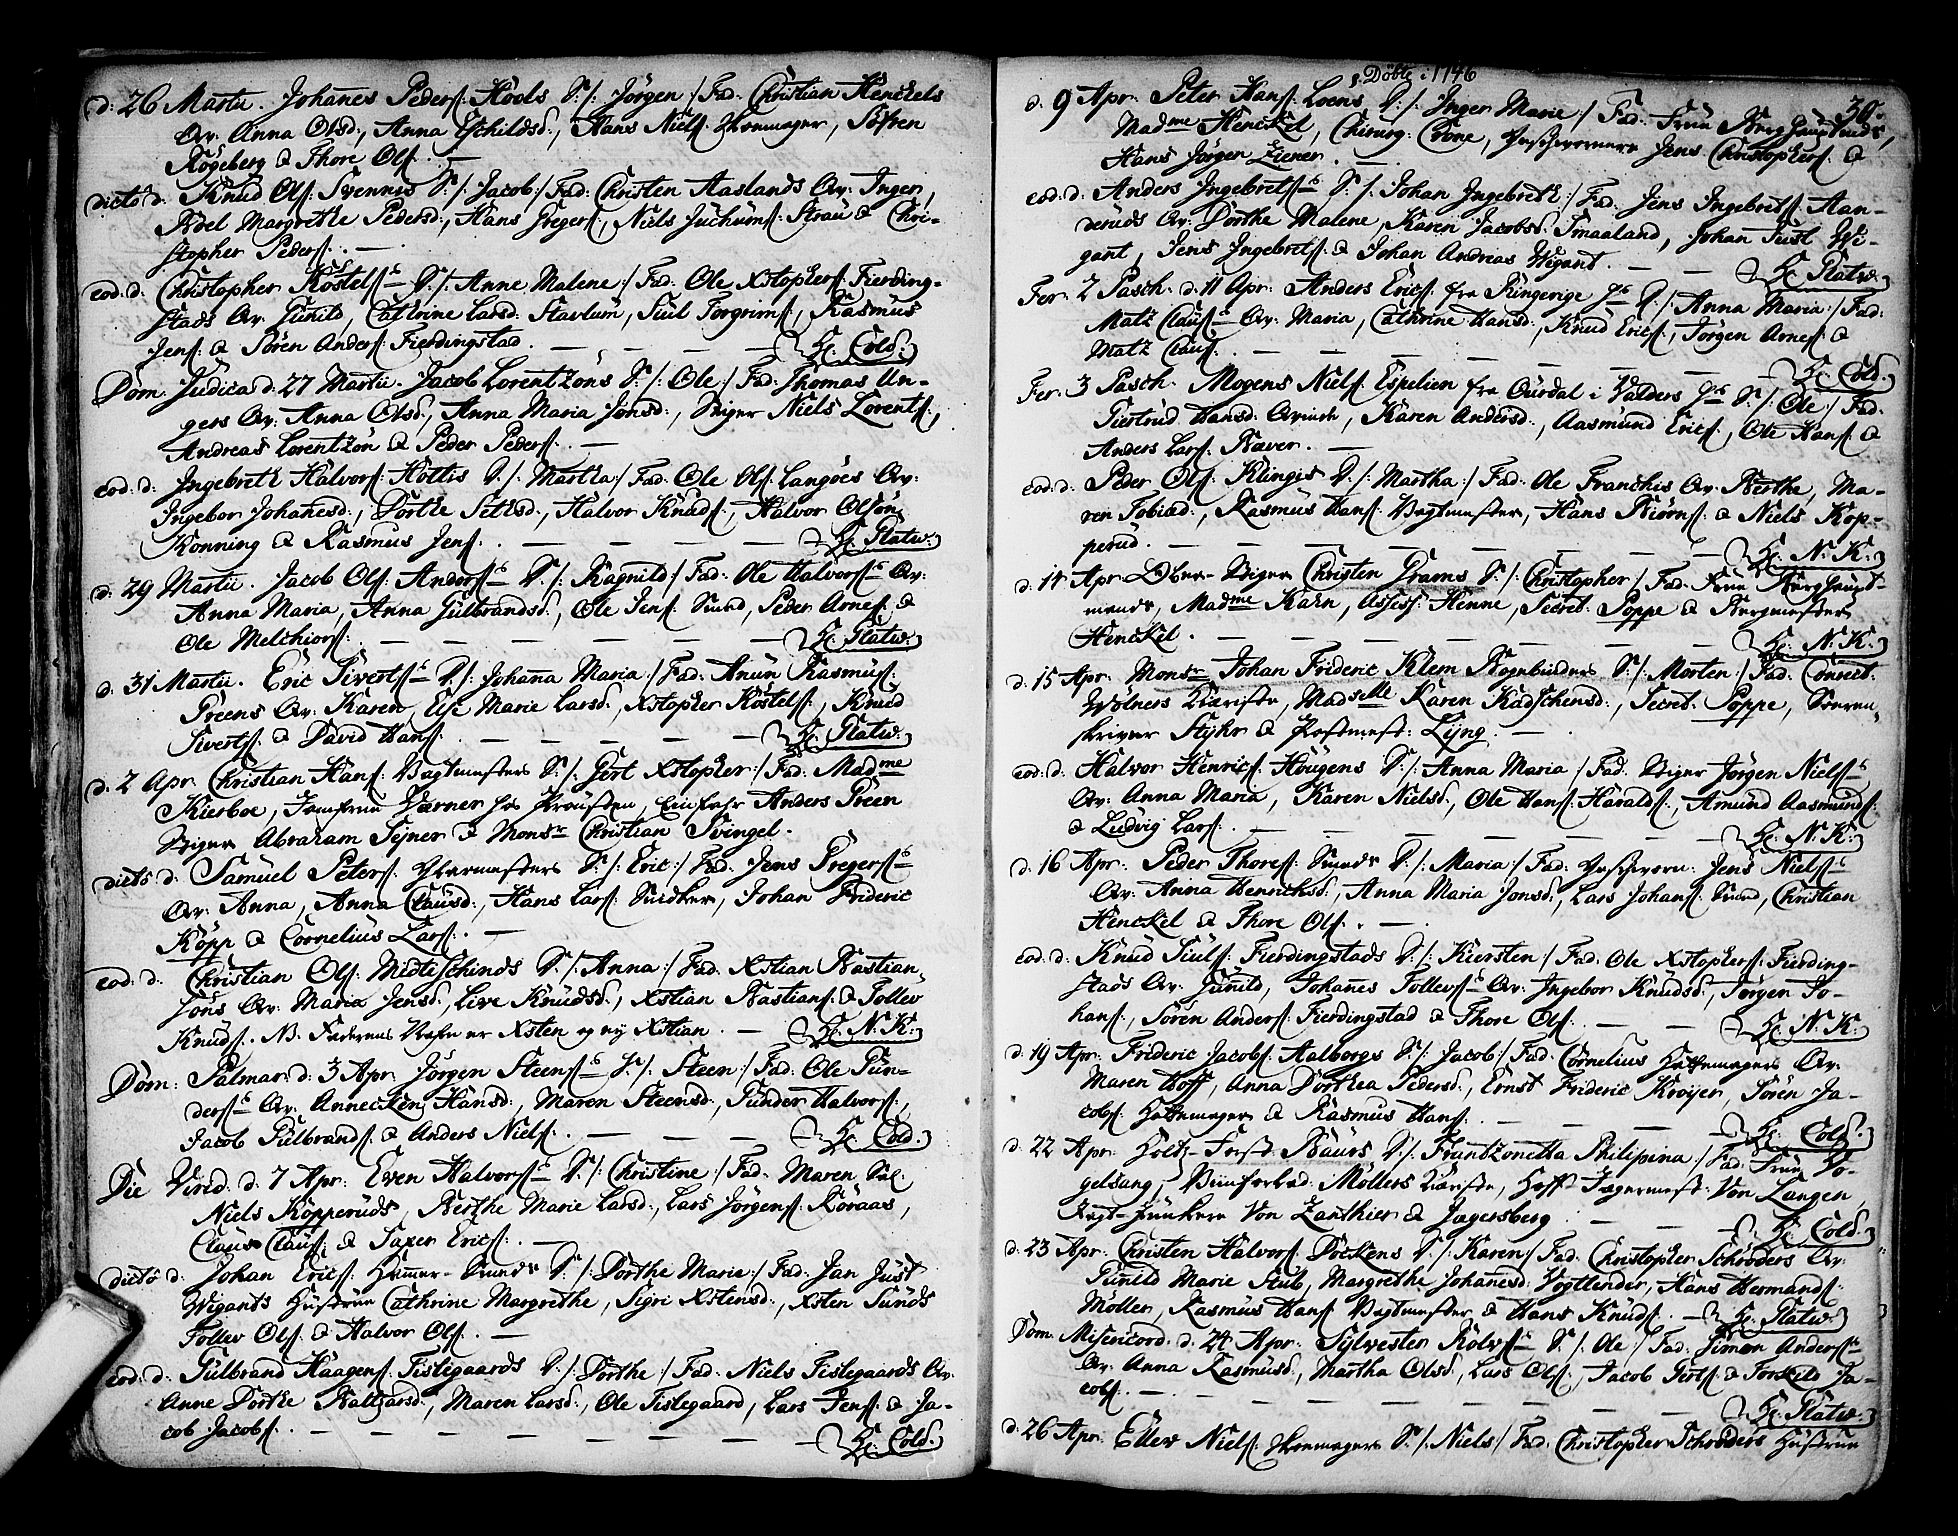 d. 26 Martii. Johañes Peders: Hools S./: Jörgen /: Fad: Christian Henckels
Qv: Anna Olsd:, Anna Eschildsd:, Hans Niels: Skomager, Söfren
Rögeberg & Thore Ols: . —
dicto d. Knud Ols: Svennes S./: Jacob :/ Fad: Christen Aaslands Qv: Inger,
Adel Margrethe Pedersd:, Hans Gregers:, Niels Juchums: Strau & Chri-
stopher Peders: . —
eod: d: Christopher Köstels: D./: Anne Malene :/ Fad: Ole Xstophers: Fierding-
stads Qv: Gunild, Cathrine Larsd: Stavlum, Juul Torgrims:, Rasmus
Jens: & Sören Anders: Fierdingstad. — — — Hr: Cold:
Dom: Judica d: 27 Martii. Jacob Lorentzöns S./: Ole :/ Fad: Thomas Un-
gers Qv: Anna Olsd:, Anna Maria Jonsd:, Stiger Niels Lorents:,
Andreas Lorentzön & Peder Peders: . —
eod: d: Ingebreth Halvors: Hottis D./: Martha :/ Fad: Ole Ols: Langöes Qv:
Ingebor Johanesd:, Dorthe Setksd:, Halvor Knuds:, Halvor Olsön
Konning & Rasmus Jens: . — — — Hr: Platw:
d: 29 Martii. Jacob Ols: Anders: D./: Ragnild :/ Fad: Ole Halvors: Qv:
Anna Maria, Anna Gulbrandsd:, Ole Jens: Smed, Peder Arnes: &
Ole Melchiors: — — — Hr: Platw:
d: 31 Martii. Eric Siverts: D./: Johana Maria :/ Fad: Anun Rasmus:
Greens Qv: Karen, Else Marie Larsd:, Xstopher Köstels:, Knud
Siverts: & David Hans: — — — Hr: Platw:
d: 2 Apr: Christian Hans: Vagtmesters S./: Gert Xstopher :/ Fad: Madme
Kierboe, Jomfrue Værner hos Provsten, Anders Green
Stiger Abraham Tejner & Monsr Christian Svingel.
dicto d. Samuel Peters: S./: Eric :/ Fad: Jens Gregers:
Qv: Anna, Anna Clausd:, Hans Lars: Snidker, Johan Frideric
Köpp & Cornelius Lars: . —
eod: d. Christian Ols: Midtischinds D./: Anna :/ Fad: Xstian Bastian-
söns Qv: Maria Jensd:, Live Knudsd:, Xstian Bastians: & Tollev
Knuds: . NB. Faderens Nafn er Xsten og ej Xstian — Hr: N: K:
Dom: Palmar: d: 3 Apr: Jörgen Steens: S./: Steen :/ Fad: Ole Gun-
ders: Qv: Annecken Hansd:, Maren Steensd:, Gunder Halvors:,
Jacob Gulbrands: & Anders Niels: . — — Hr: Cold:
Die Virid: d: 7 Apr: Even Halvors: D./: Christine :/ Fad: Maren Sal:
Niels Kopperuds, Berthe Marie Larsd:, Lars Jörgens: Röraas,
Claus Claus: & Taxer Erics: . —
dicto d. Johan Erics: Hammer-Smeds D./: Dorthe Marie :/ Fad: Jan Just
Wigants Hustrue Cathrine Margrethe, Sigri Xstensd:, Xsten Sunds
Tollev Ols: & Halvor Ols: . —
eod: d: Gulbrand Haagens: Fislegaards D./: Dorthe :/ Fad: Niels Fislegaards Qv:
Anne Dorthe Baltzarsd:, Maren Larsd:, Ole Fislegaard, Lars Jens: & Ja-
cob Jacobs: . — — — Hr: Cold:
Döbte i 1746
30.
d: 9 Apr: Peter Hans: Loens D./: Inger Marie :/ Fad: Frue Berghauptmands,
Madme Henckel, Chirurg: Crone, Jens Christophers: &
Hans Jörgen Ziener. —
eod: d: Anders Ingebrets: S./: Johan Ingebreth :/ Fad: Jens Ingebrets: Aan-
deruds Qv: Dorthe Malene, Karen Jacobsd: Smaaland, Johan Just Wi-
gant, Jens Ingebrets: & Johan Andreas Wigant. — — Hr: Platw:
Fer: 2 Pasch: d: 11 Apr: Anders Erics: fra Ringerige D./: Anna Maria :/ Fad:
Matz Claus: Qv: Maria, Cathrine Hansd:, Knud Erics:, Jörgen Arnes: &
Matz Claus: — — — Hr: Cold:
Fer: 3 Pasch: Mogens Niels: Espelien fra Ourdal i Valders S./: Ole :/ Fad:
Giertrud Hansd: Qvinde, Karen Andersd:, Aasmund Erics:, Ole Hans: &
Anders Lars: Bæver. —
eod: d: Peder Ols: Klingis D./: Martha :/ Fad: Ole Franckis Qv: Berthe, Ma-
ren Tobiæd:, Rasmus Hans: Vagtmester, Hans Biörns: & Niels Kop-
perud. — — — Hr: N: K:
d: 14 Apr: Ober-Stiger Christen Grams S./: Christopher :/ Fad: Frue Berghaupt-
mands, Madme Karn, Assess: Henne, Secret: Poppe & Bergmester
Henckel. — — — Hr: N: K:
d: 15 Apr: Monsr Johan Frideric Klem Bogbinders S./: Morten :/ Fad: Conrect:
Wölners Kiæriste, Madselle Karen Kadschensd:, Secret: Poppe, Soren-
skriver Styhr & Postmest: Lyng. —
eod: d: Halvor Henrics: Hougens D./: Anna Maria :/ Fad: Stiger Jörgen Niels:
Qv: Anna Maria, Karen Nielsd:, Ole Hans: Haralds:, Amund Aasmunds:
& Ludvig Lars: . — — — Hr: N: K:
d: 16 Apr: Peder Thores: Smeds D./: Maria :/ Fad: Jens Niels:
Qv: Anna Henrichsd:, Anna Maria Jonsd:, Lars Johans: Smed, Christian
Henckel & Thore Ols: . —
eod: d: Knud Juuls: Fierdingstads D./: Kiersten :/ Fad: Ole Xstophers: Fierding-
stads Qv: Gunild, Johanes Tollevs: Qv: Ingebor Knudsd:, Jörgen Jo-
hans:, Sören Anders: Fierdingstad & Thore Ols: . — — Hr: N: K:
d: 19 Apr: Frideric Jacobs: Aalborgs S./: Jacob :/ Fad: Cornelius Hattemagers Qv:
Maren Hoff, Anna Dorthea Pedersd:, Ernst Frideric Kroijer, Sören Ja-
cobs: Hattemager & Rasmus Hans: . — — — Hr: Cold:
d: 22 Apr: Holtz-Först Baurs D./: Frantzonetta Philipina :/ Fad: Frue Vo-
gelsang, Möllers Kiæriste, Hoff-Jægermest: Von Langen,
Jagt-Junkere Von Zanthier & Jægersberg — — Hr: Cold:
d: 23 Apr: Christen Halvors: Dockens D./: Karen :/ Fad: Christopher Schröders Qv:
Gunild Marie Stub, Margrethe Johanesd: Vogtlender, Hans Hermands:
Möller, Rasmus Hans: Vagtmester & Hans Knuds: . — Hr: Platw:
Dom: Misericord: d: 24 Apr: Sylvester Rolvs: S./: Ole :/ Fad: Simon Anders:
Qv: Anna Rasmusd:, Martha Olsd:, Lars Ols:, Jacob Gerts: & Torkild Ja-
cobs: . — — — Hr: Platw:
d: 26 Apr: Ellev Niels: Skomagers S./: Niels :/ Fad: Christopher Schröders Hustrue